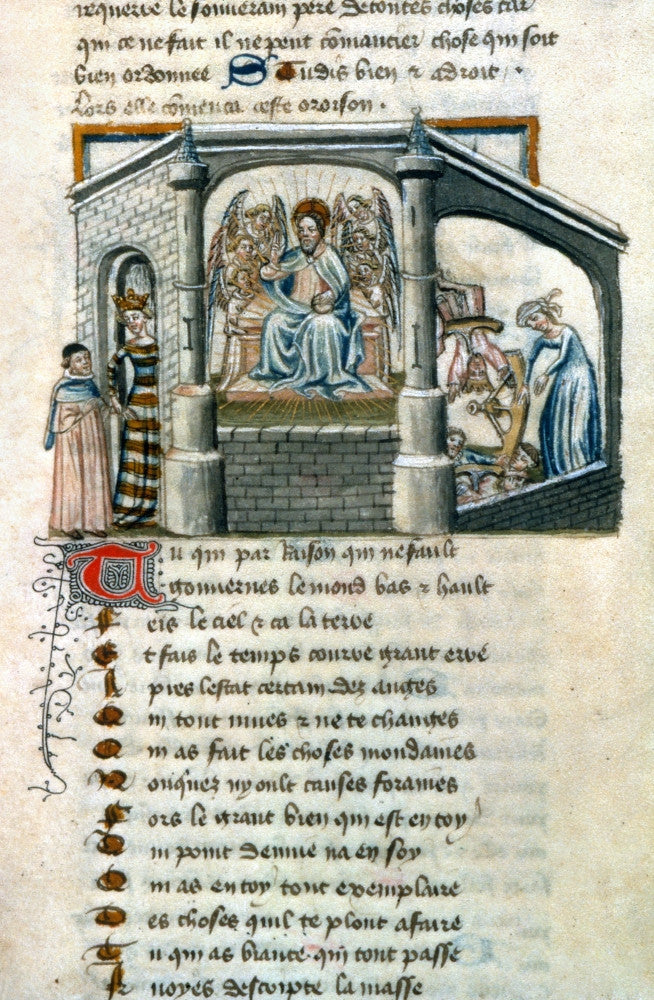 requerre le souverain pere de toutes choses car
qui ce ne fait il ne peut comancier chose qui soit
bien ordonnee Studis bien & adroit.
Lors elle comenca ceste oroison.
Tu qui par Raison qui ne fault
gouuernes le mond bas & hault
Feis le ciel & ca la terre
Et fais le temps courre grant erre
Apres lestat certain dez anges
Qui tout mues & ne te changes
Qui as fait les choses mondaines
Onquez ny ont causes foraines
Fors le grant bien qui est en toy
Qui point denuie na en soy
Qui as en toy tout exemplaire
Des choses quil te plout a faire
Tu qui as biaute qui tout passe
la masse